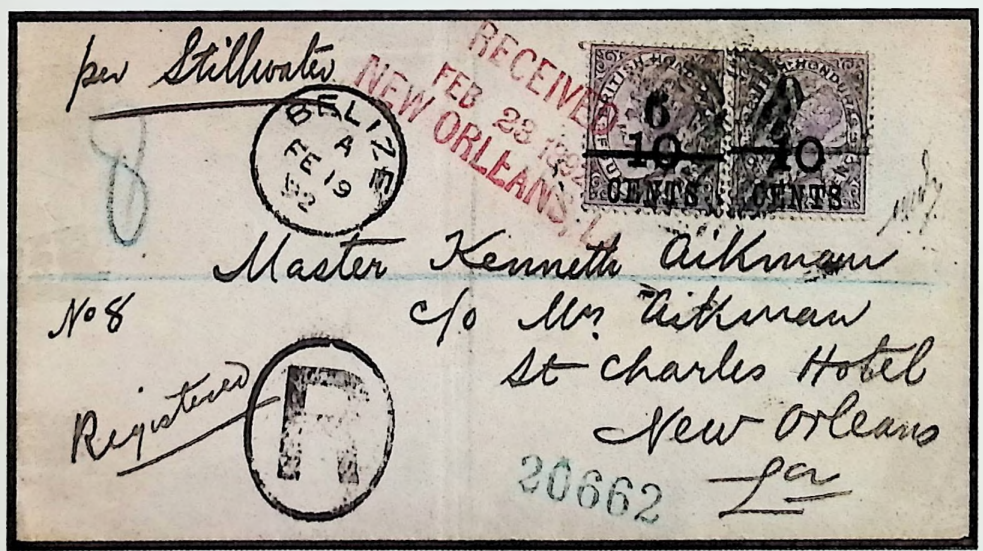 per Stillwater
BELIZE
A
FE 19
92
RECEIVED
FEB 23
NEW ORLEANS, L
BRITISH HONDU
6
10
CENTS
HONDU
10
CENTS
8
Master Kenneth Aikman
No 8
c/o Mrs Aikman
St Charles Hotel
New Orleans
La
Registered
R
20662